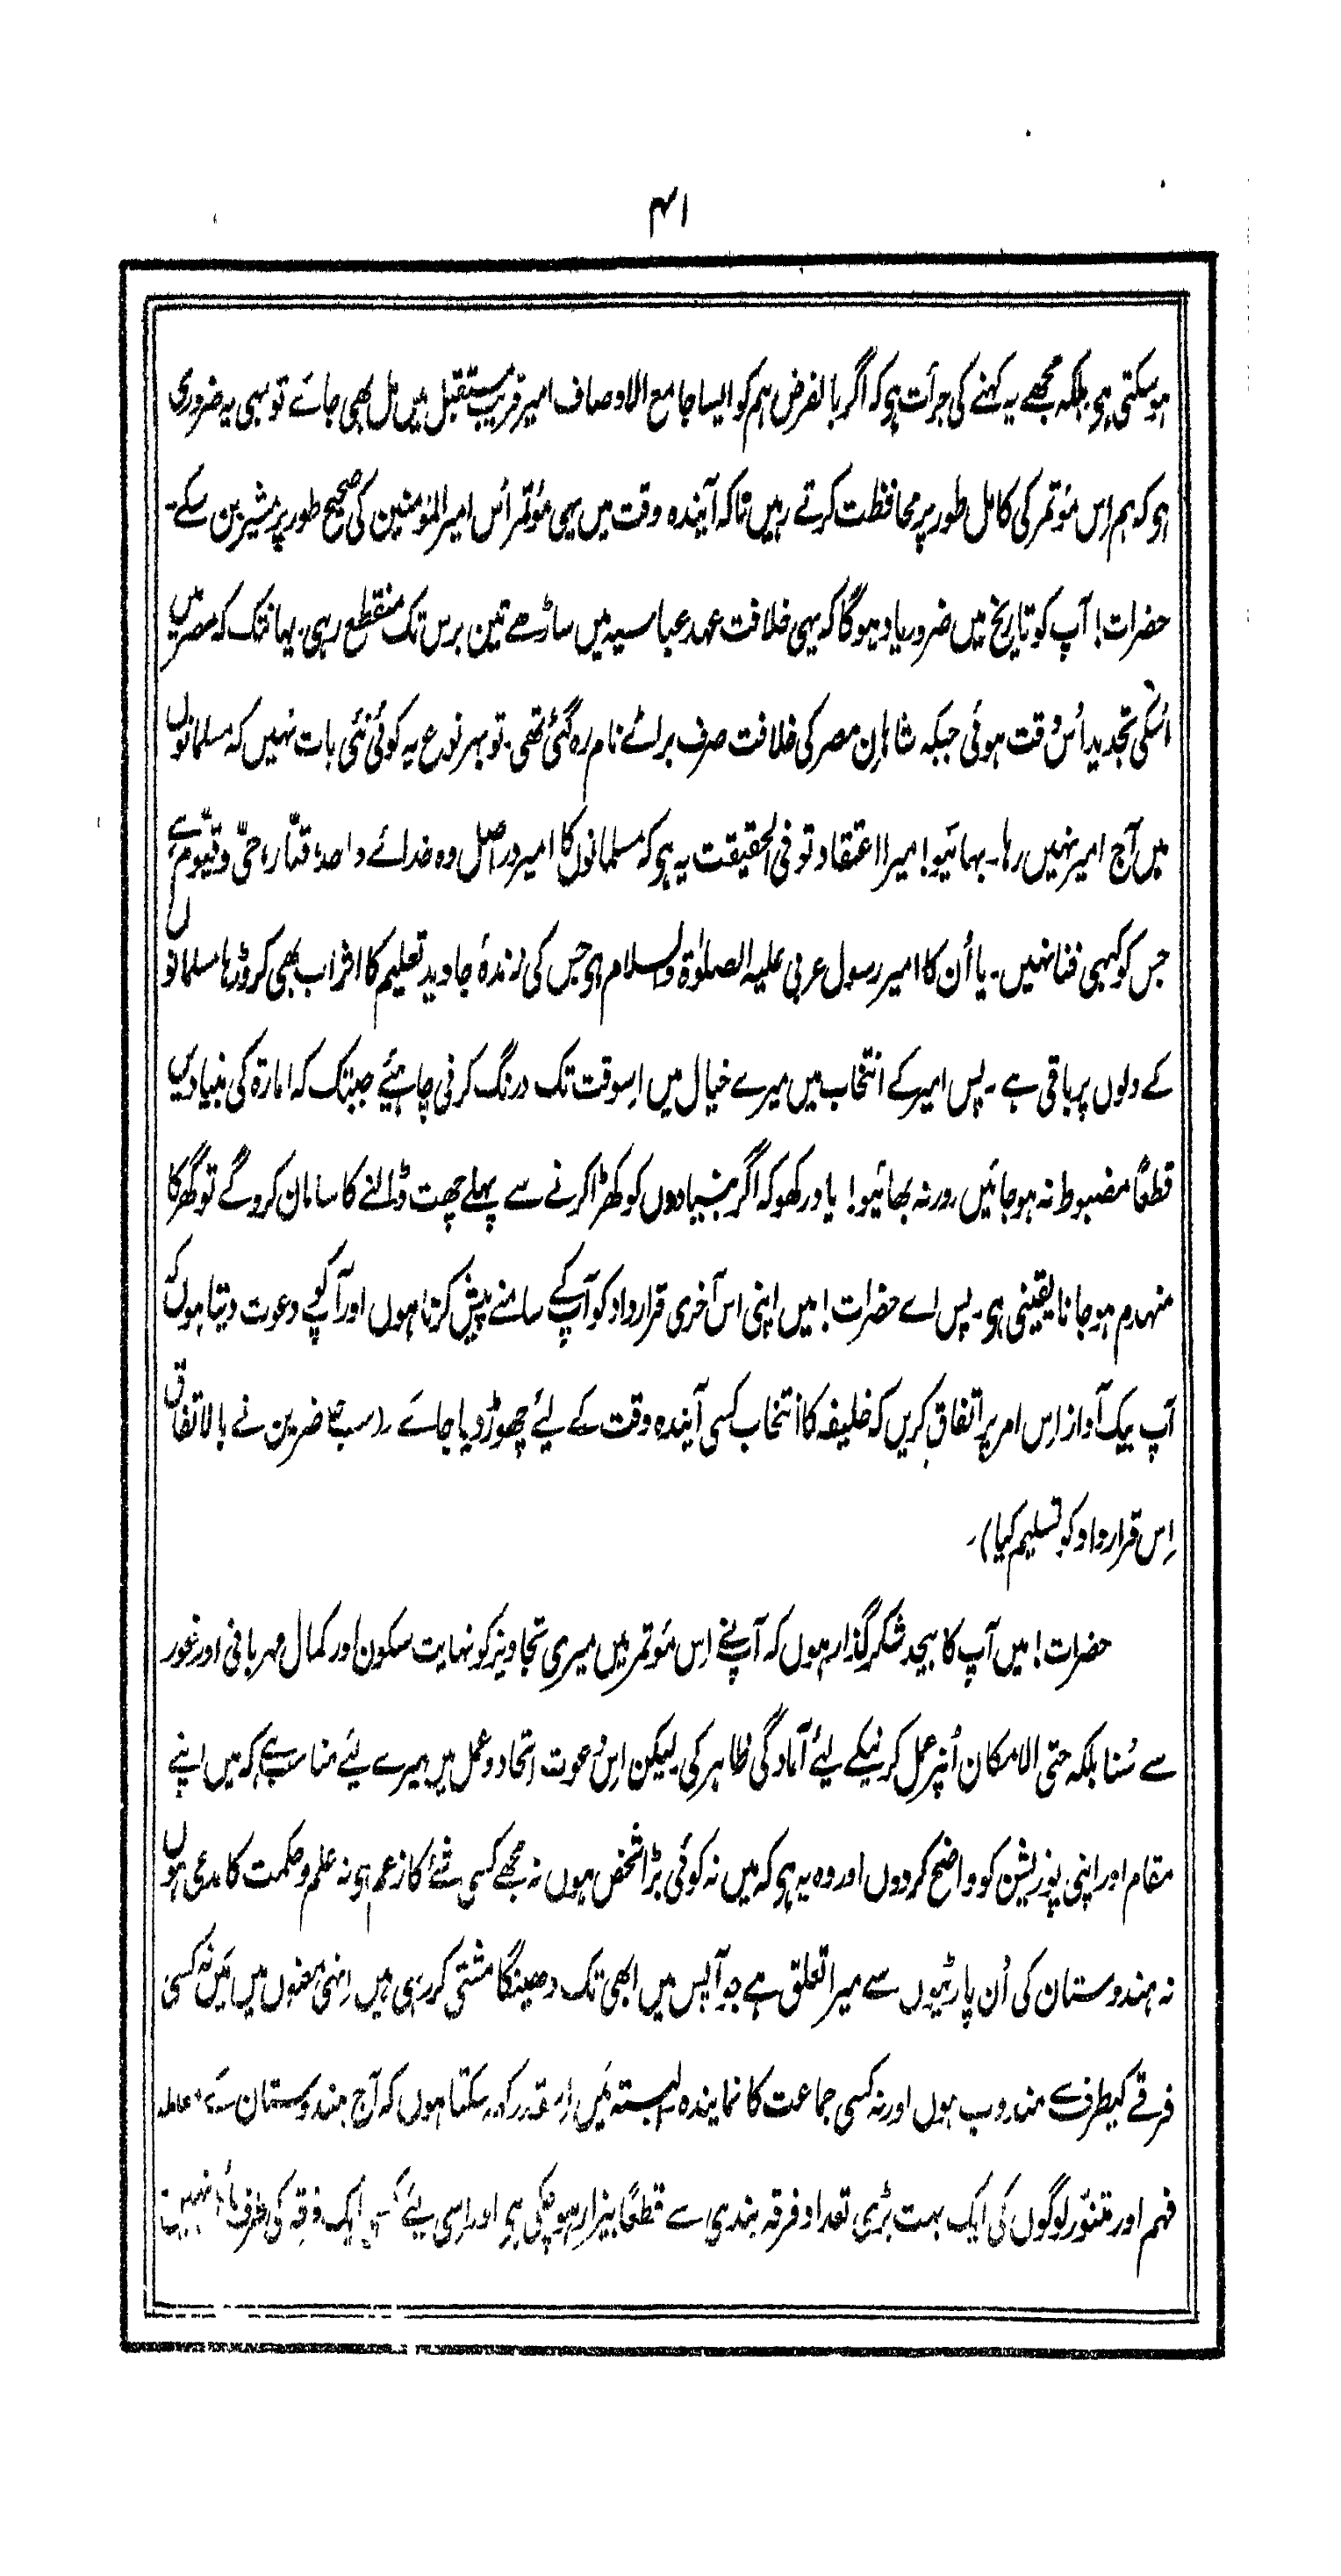 ۴۱
ہو سکتی ہی بلکہ مجھے یہ کہنے کی جرأت ہی کہ اگر بالفرض ہم کو ایسا جامع الاوصاف امیر قریب مستقبل میں مل بھی جائے تو بھی یہ ضروری
ہی کہ ہم اِس مؤتمر کی کامل طور پر محافظت کرتے رہیں تاکہ آیندہ وقت میں یہی مؤتمر اُس امیر المؤمنین کی صحیح طور پر مشیر بن سکے۔
حضرات! آپ کو تاریخ میں ضرور یاد ہوگا کہ یہی خلافت عہد عباسیہ میں ساڑھے تین برس تک منقطع رہی۔ یہانتک کہ مصر میں
اُسکی تجدید اُس وقت ہوئی جبکہ شاہانِ مصر کی خلافت صرف برائے نام رہ گئی تھی۔ تو بہر نوع یہ کوئی نئی بات نہیں کہ مسلمانوں
میں آج امیر نہیں رہا۔ بہائیو! میرا اعتقاد تو فی الحقیقت یہ ہی کہ مسلمانوں کا امیر در اصل وہ خدائے واحد، قہّار، حیّ و قیّوم ہے
جس کو کبھی فنا نہیں۔ یا اُن کا امیر رسول عربی علیہ الصلوٰۃ والسلام ہی جس کی زندہٴ جاوید تعلیم کا اثر اب بھی کروڑہا مسلمانوں
کے دلوں پر باقی ہے۔ پس امیر کے انتخاب میں میرے خیال میں اِسوقت تک درنگ کرنی چاہیئے جبتک کہ امارۃ کی بنیادیں
قطعًا مضبوط نہ ہو جائیں ورنہ بھائیو! یاد رکھو کہ اگر بنیادوں کو کھڑا کرنے سے پہلے چھت ڈالنے کا سامان کروگے تو گھر کا
منہدم ہو جانا یقینی ہی۔ پس اے حضرات! میں اپنی اس آخری قرارداد کو آپ کے سامنے پیش کرتا ہوں اور آپکو دعوت دیتا ہوں کہ
آپ بیک آواز اِس امر پر اتفاق کریں کہ خلیفہ کا انتخاب کسی آیندہ وقت کے لیئے چھوڑ دیا جائے۔ (سب حاضرین نے بالاتفاق
اِس قرارداد کو تسلیم کیا)۔
حضرات! میں آپ کا بیحد شکر گذار ہوں کہ آپنے اِس مؤتمر میں میری تجاویز کو نہایت سکون اور کمال مہربانی اور غور
سے سُنا بلکہ حتی الامکان اُنپر عمل کرنیکے لیئے آمادگی ظاہر کی۔ لیکن اِس دعوت اتحاد و عمل میں میرے لیئے مناسب ہے کہ میں اپنے
مقام اور اپنی پوزیشن کو واضح کردوں اور وہ یہ ہی کہ میں نہ کوئی بڑا شخص ہوں نہ مجھے کسی شئے کا زعم ہی نہ علم و حکمت کا مدعی ہوں
نہ ہندوستان کی اُن پارٹیوں سے میرا تعلق ہے جو آپس میں ابھی تک دھینگا مشتی کر رہی ہیں۔ انہی معنوں میں مَیں نہ کسی
فرقے کیطرف سے مندوب ہوں اور نہ کسی جماعت کا نمایندہ۔ البستہ مَیں اِسقدر کہہ سکتا ہوں کہ آج ہندوستان کے معاملہ
فہم اور متنوّر لوگوں کی ایک بہت بڑی تعداد فرقہ بندی سے قطعًا بیزار ہوچکی ہی اور اِسی لیئے کسی ایک فرقہ کی طرف